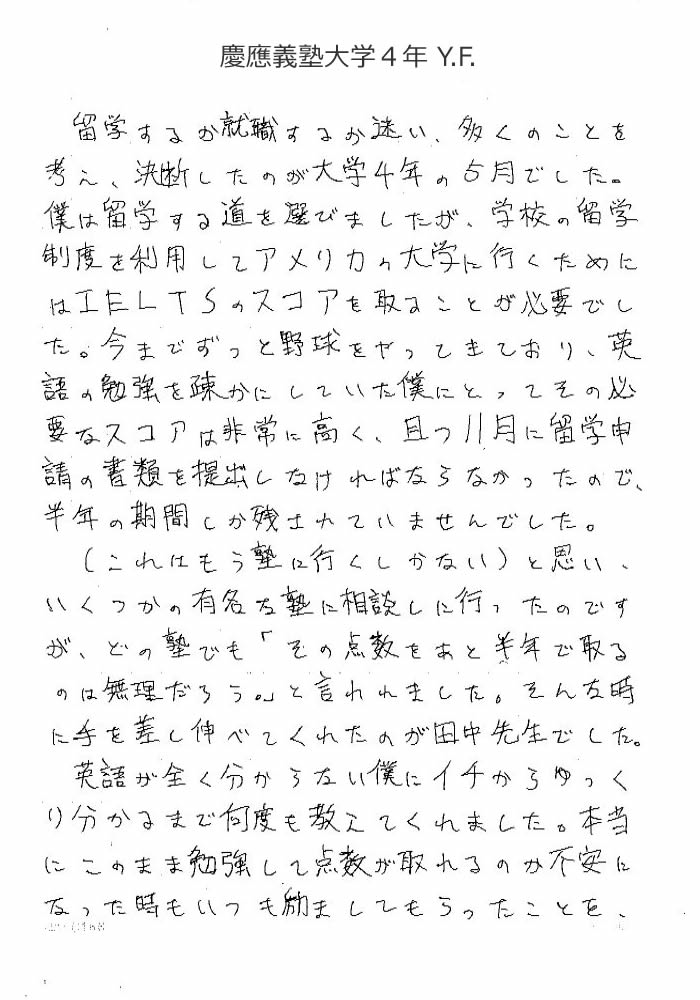 慶應義塾大学4年 Y.F.
留学するか就職するか迷い、多くのことを
考え、決断したのが大学4年の5月でした。
僕は留学する道を選びましたが、学校の留学
制度を利用してアメリカの大学に行くために
はIELTSのスコアを取ることが必要でし
た。今までずっと野球をやってきており、英
語の勉強を疎かにしていた僕にとってその必
要なスコアは非常に高く、且つ11月に留学申
請の書類を提出しなければならなかったので、
半年の期間しか残されていませんでした。
(これはもう塾に行くしかない)と思い、
いくつかの有名な塾に相談しに行ったのです
が、どの塾でも「その点数をあと半年で取る
のは無理だろう。」と言われました。そんな時
に手を差し伸べてくれたのが田中先生でした。
英語が全く分からない僕にイチからゆっく
り分かるまで何度も教えてくれました。本当
にこのまま勉強して点数が取れるのか不安に
なった時もいつも励ましてもらったことを、